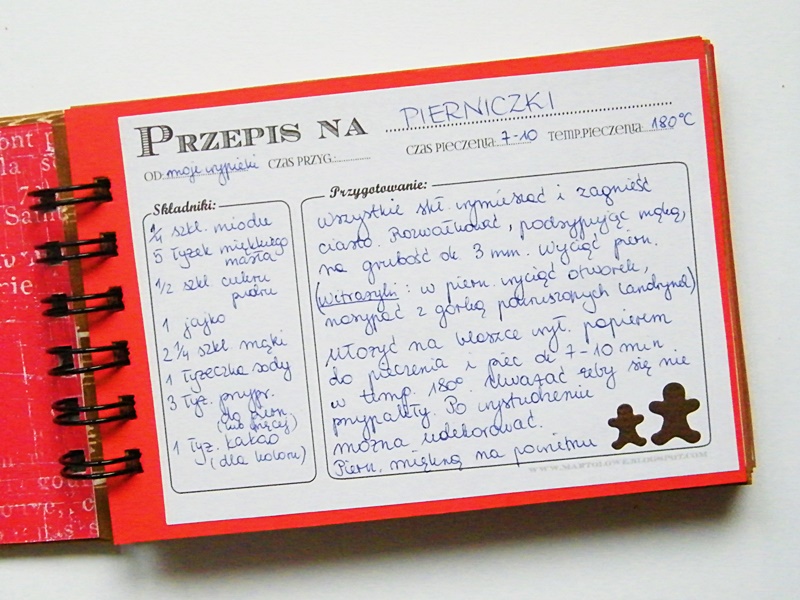 PRZEPIS NA PIERNICZKI
OD: moje wypieki CZAS PRZYG.: CZAS PIECZENIA 7-10 TEMP.PIECZENIA 180°C
Składniki:
1/4 szkl. miodu
5 łyżek miękkiego
masła
1/2 szkl cukru
pudru
1 jajko
2 1/4 szkl mąki
1 łyżeczka sody
3 łyż. przypr.
do piern.
(lub więcej)
1 łyż. kakao
(dla koloru)
Przygotowanie:
Wszystkie skł. wymieszać i zagnieść
ciasto. Rozwałkować, podsypując mąką,
na grubość ok. 3 mm. Wyciąć piern.
(Witrażyki: w piern. wyciąć otworek,
nasypać z górką pokruszonych landrynek)
Ułożyć na blaszce wył. papierem
do pieczenia i piec ok 7-10 min
w temp. 180°. Uważać żeby się nie
przypaliły. Po wystudzeniu
można udekorować.
Piern. miękną na powietrzu